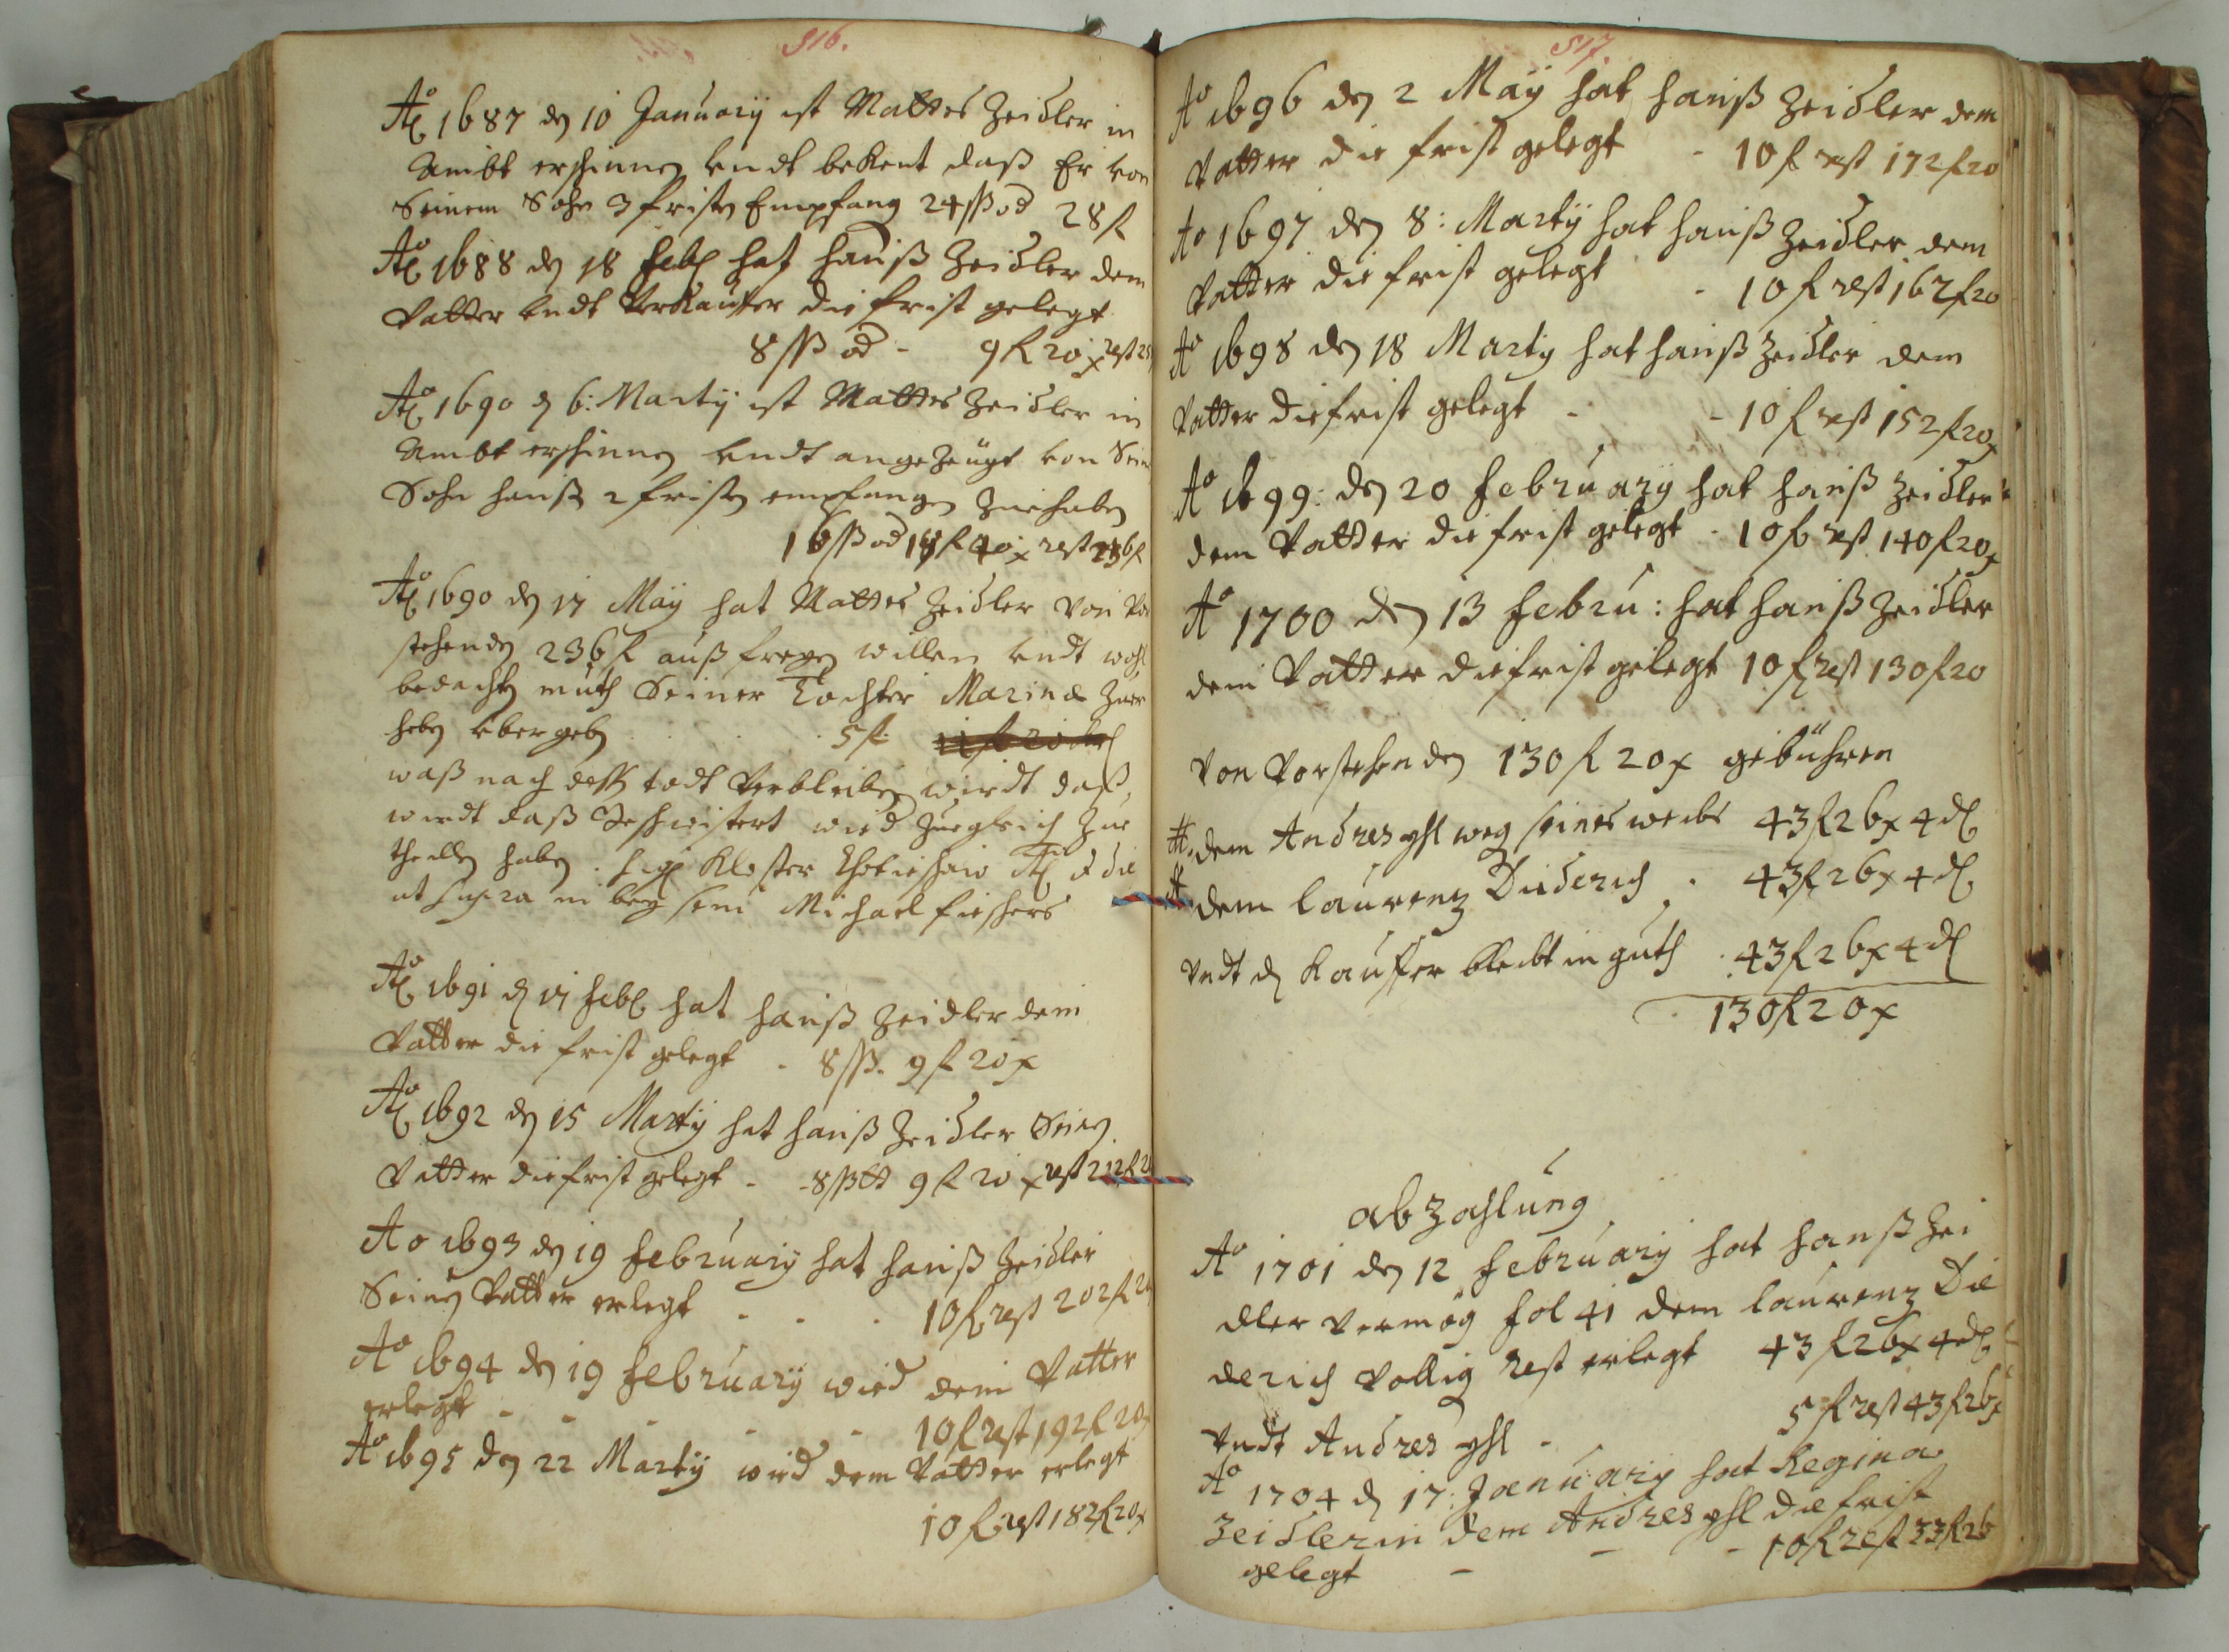 516.
Ao 1687 den 10 Januarij ist Mattes Zeidler in
Ambt erschinnen vndt bekent daß Er von
Seinem Sohn 3 fristen Empfang 24 ßß od 28 fl
Ao 1688 den 18 Feb hat Hanß Zeidler dem
Vatter vndt Verkauffer die frist gelegt
8 ßß od - 9 fl 20 x rest 25
Ao 1690 den 6: Martij ist Mattes Zeidler in
Ambt erschinnen vndt angezeügt von Sein
Sohn Hanß 2 fristen empfangen zue haben
16 ßß od 18 fl 40 x rest 236 fl
Ao 1690 den 17 Maÿ hat Mattes Zeidler von Vor
stehenden 236 fl auß freyen willen vndt wohl
bedachten muth Seiner Tochter Marina zuer
heben übergeben 5 fl
waß nach deß todt Verbleiben wirdt daß
wirdt daß Geschwistert wird zuegleich zue
theillen haben. Kloster Chotieschaw Ao et die
ut supra in bey sein Michael Fischers
Ao 1691 den 17 Feb hat Hanß Zeidler dem
Vatter die frist gelegt - 8 ßß. 9 fl 20 x
Ao 1692 den 15 Martij hat Hanß Zeidler Seinen
Vatter die frist gelegt - 8 ßß 9 fl 20 x rest 212 fl 20
Ao 1693 den 19 February hat Hanß Zeidler
Seinen Vatter erlegt - - - 10 fl rest 202 fl 20
Ao 1694 den 19 February wird dem Vatter
erlegt - - - - - 10 fl rest 192 fl 20 x
Ao 1695 den 22 Martij wird dem Vatter erlegt
10 fl rest 182 fl 20 x
517.
Ao 1696 den 2 Maÿ hat Hanß Zeidler dem
Vatter die frist gelegt - 10 fl rest 172 fl 20
Ao 1697 den 8: Martij hat Hanß Zeidler dem
Vatter die frist gelegt - 10 fl rest 162 fl 20
Ao 1698 den 18 Martij hat Hanß Zeidler dem
Vatter die frist gelegt - - 10 fl rest 152 fl 20 x
Ao 1699: den 20 February hat Hanß Zeidler
dem Vatter die frist gelegt - 10 fl rest 140 fl 20 x
Ao 1700 den 13 Febru: hat Hanß Zeidler
dem Vatter die frist gelegt 10 fl rest 130 fl 20
Von Vorstehenden 130 fl 20 x gebühren
dem Andres yhl weg seines weibs 43 fl 26 x 4 d
dem Laurenz Diderich . 43 fl 26 x 4 d
Vndt den Kauffer bleibt in guth . 43 fl 26 x 4 d
130 fl 20 x
abzahlung
Ao 1701 den 12 February hat Hanß Zei
dler vermög fol 41 dem Laurenz Die
derich vollig rest erlegt 43 fl 26 x 4 d
Vndt Andres yhl - 5 fl rest 43 fl 26 x
Ao 1704 den 17: January hat Regina
Zeidlerin dem Andres yhl die frist
gelegt - - - 10 fl rest 33 fl 26